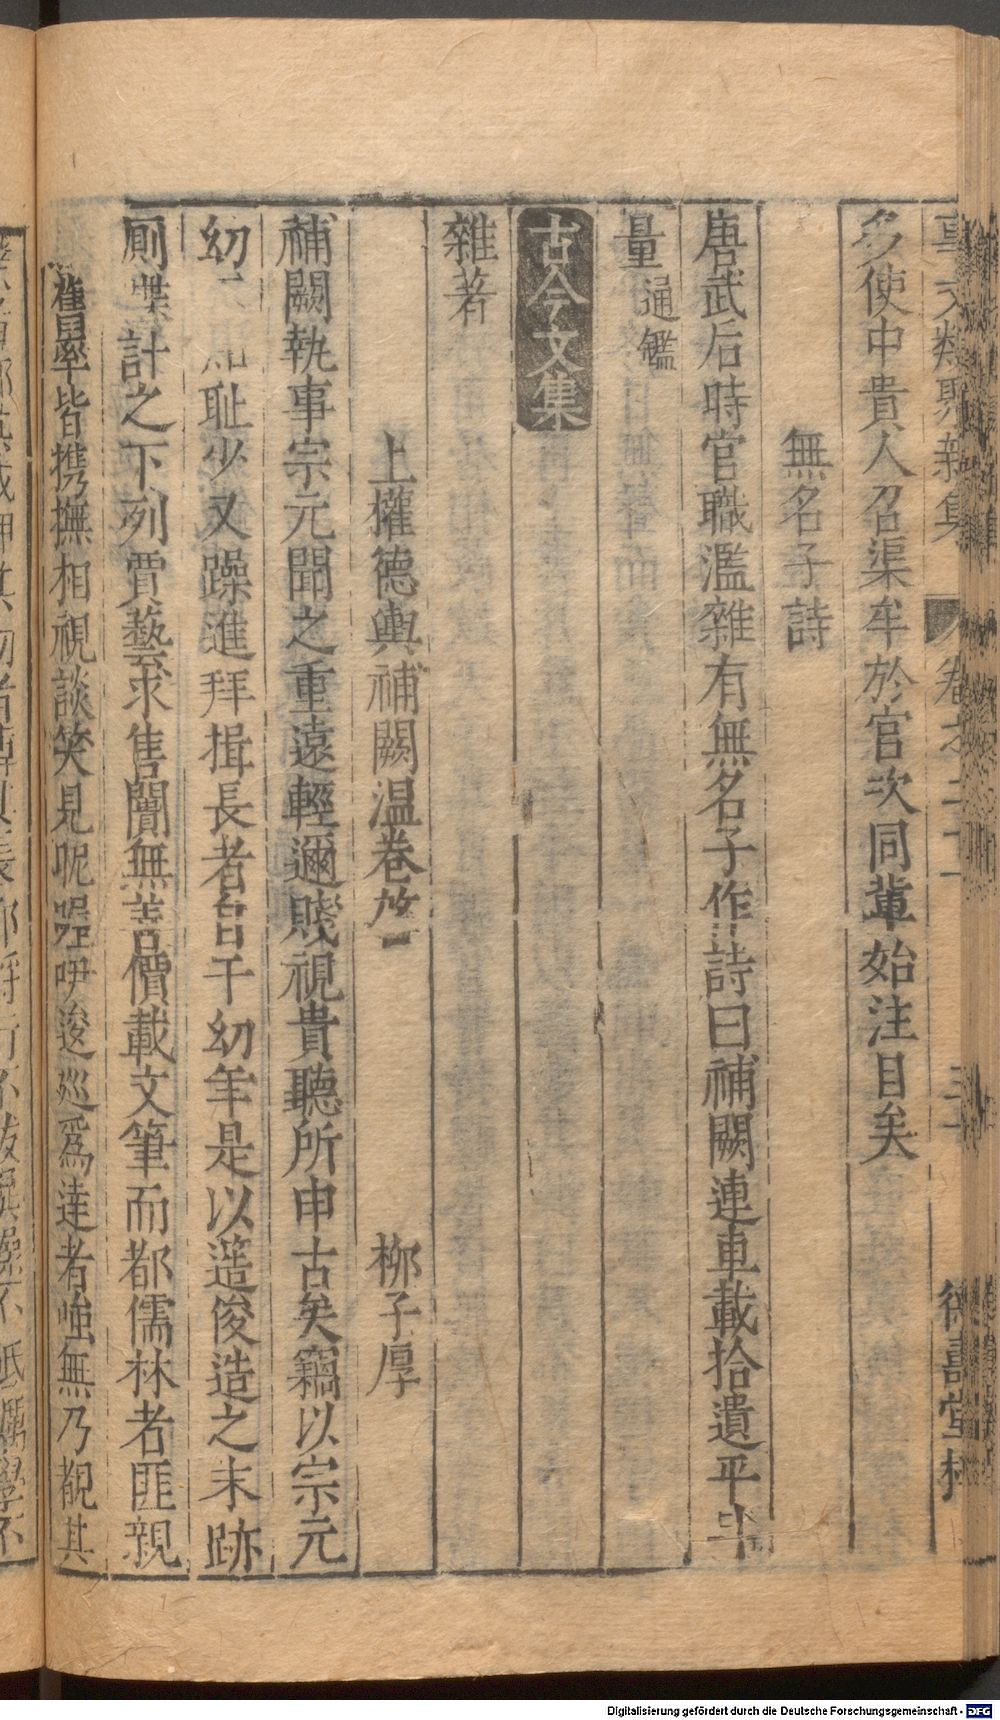 事文類聚新集 卷之二十 三十 德壽堂梓
多使中貴人召渠牟於官次同輩始注目矣
無名子詩
唐武后時官職濫雜有無名子作詩曰補闕連車載拾遺平斗
量通鑑
古今文集
雜著
上權德輿補闕温卷 柳子厚
補闕執事宗元聞之重遠輕邇賤視貴聽所申古矣竊以宗元
幼不知耻少又躁進拜揖長者自于幼年是以簉俊造之末跡
厠牒計之下列賈藝求售闃無善價載文筆而都儒林者匪親
皆携撫相視談笑見昵喔咿逡巡爲達者嗤無乃覩其
Digitalisierung gefördert durch die Deutsche Forschungsgemeinschaft - DFG